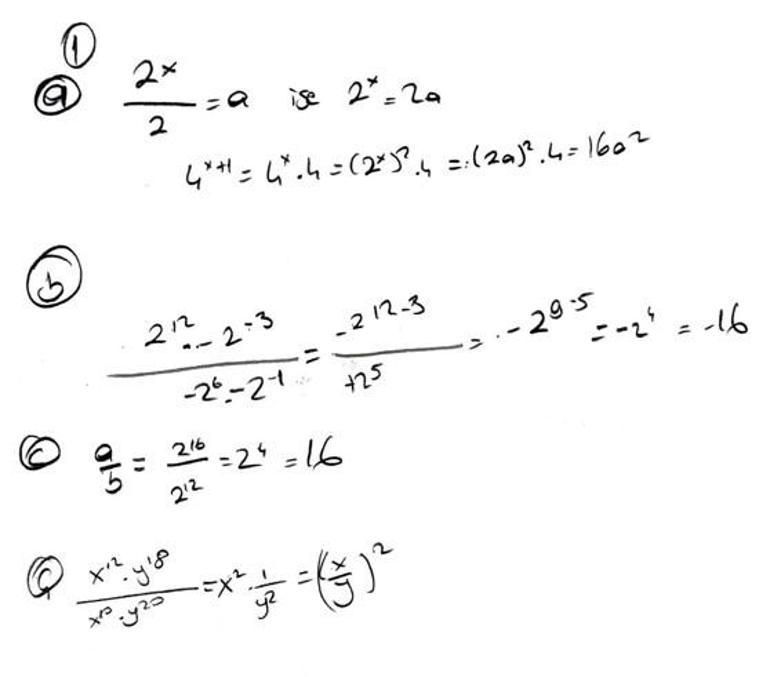 ①
ⓐ 2^x/2 = a ise 2^x = 2a
4^(x+1) = 4^x . 4 = (2^x)^2 . 4 = (2a)^2 . 4 = 16a^2
ⓑ (2^12 . -2^-3)/(-2^6 . -2^-1) = (-2^(12-3))/(+2^5) = -2^(9-5) = -2^4 = -16
ⓒ a/b = 2^16/2^12 = 2^4 = 16
ç (x^12 . y^18)/(x^10 . y^20) = x^2 . 1/y^2 = (x/y)^2